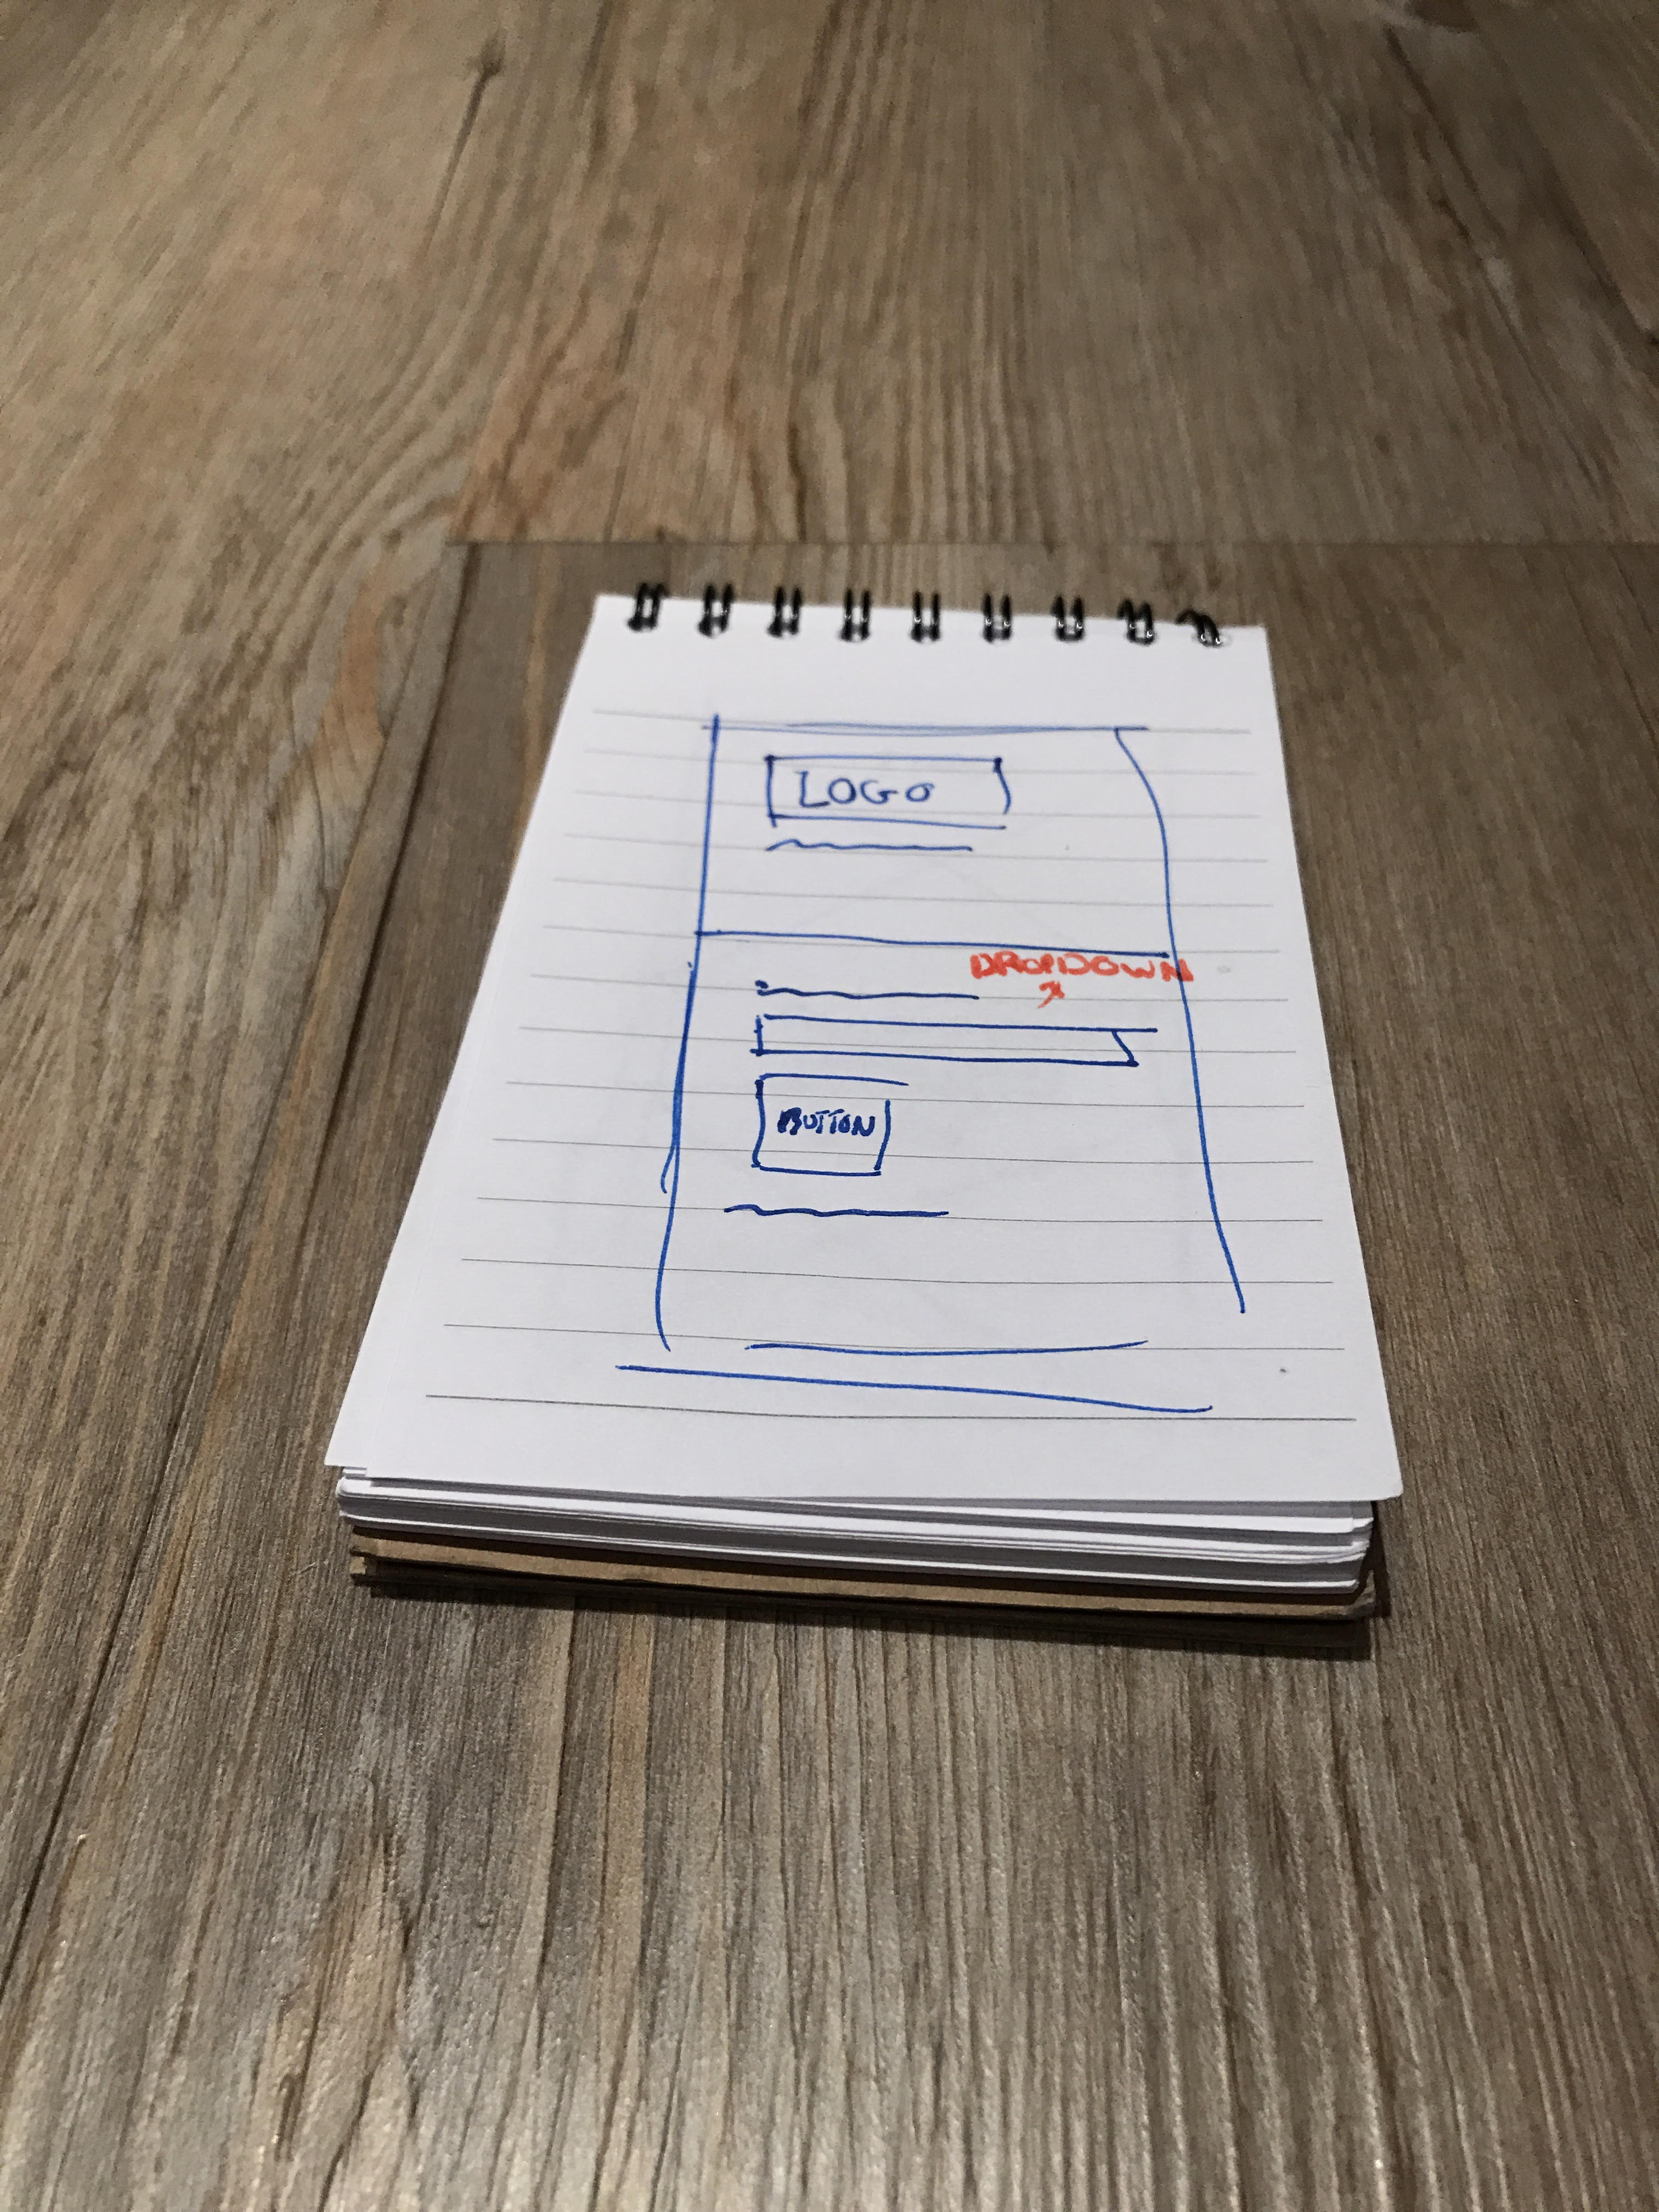 LOGO
DROPDOWN
BUTTON